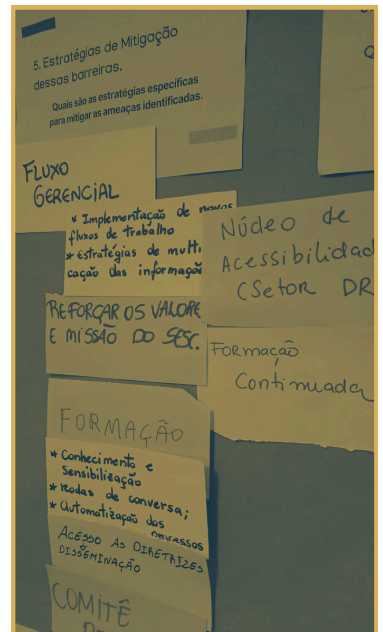 5. Estratégias de Mitigação
dessas barreiras.
Quais são as estratégias específicas
para mitigar as ameaças identificadas.
FLUXO
GERENCIAL
* Implementação de novos
fluxos de trabalho
* Estratégias de multi
cação das informaçõ
REFORÇAR OS VALORE
E MISSÃO DO SESC.
Núcleo de
Acessibilidad
(Setor DR
FORMAÇÃO
Continuada
FORMAÇÃO
* Conhecimento e
Sensibilização
* Rodas de conversa;
* Automatização dos
processos
ACESSO AS DIRETRIZES
DISSEMINAÇÃO
COMITÊ